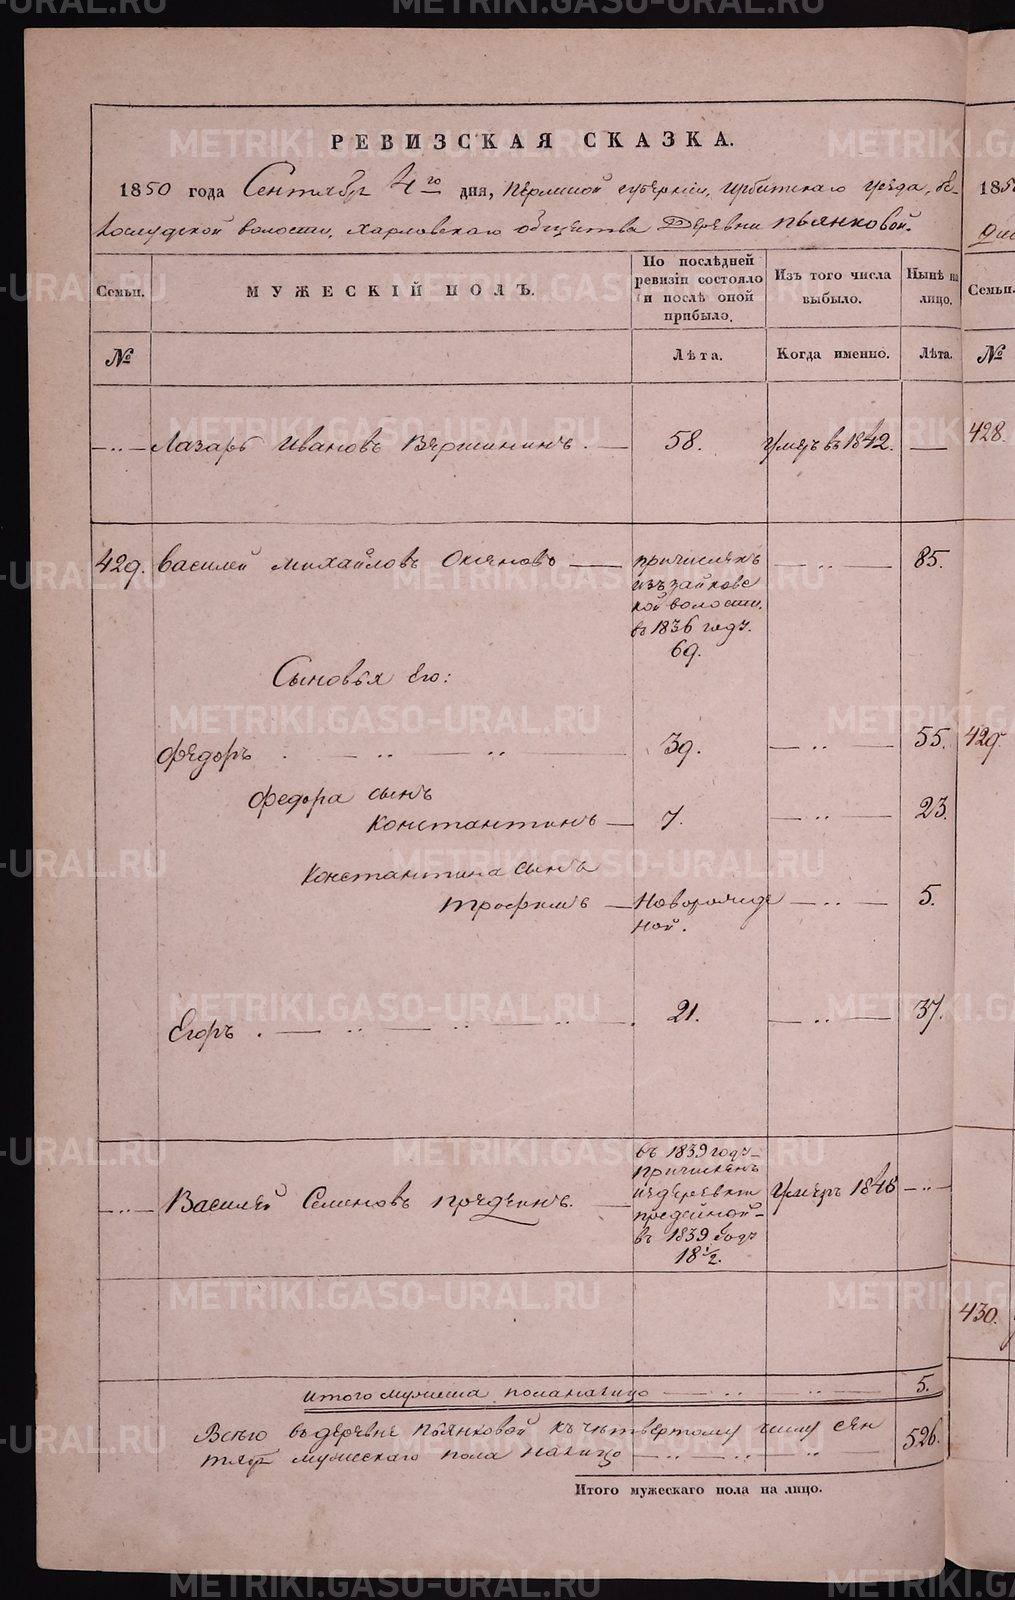 РЕВИЗСКАЯ СКАЗКА.
1850 года Сентября 4го дня, Пермской губернiи, Ирбитскаго уѣзда, бѣ-
лослудской волости, Харловскаго общества Деревни Пьянковой.
Семьи.
МУЖЕСКІЙ ПОЛЪ.
По послѣдней ревизіи состояло и послѣ оной прибыло.
Изъ того числа выбыло.
Нынѣ на лицо.
№
Лѣта.
Когда именно.
Лѣта.
Лазарь Ивановъ Вяршининъ. 58. Умеръ въ 1842.
429. Василей Михайловъ Окяновъ
причисленъ
изъ зайковс
кой волости.
въ 1836 году.
69.
85.
Сыновья его:
Федоръ 39. 55.
Федора сынъ
Константинъ 7. 23.
Константина сынъ
Трофимъ Новорожде
ной. 5.
Егоръ 21. 37.
Василей Семеновъ
въ 1839 году
причисленъ
из деревни
в 1839 году
18 1/2.
Умеръ 1846
Итого мужеска пола налицо 5.
Всего въ деревне Пьянковой къ четвертому числу сен
тября мужескаго пола налицо 526.
Итого мужескаго пола на лицо.
1850
Семьи.
№
428.
429.
430.
METRIKI.GASO-URAL.RU